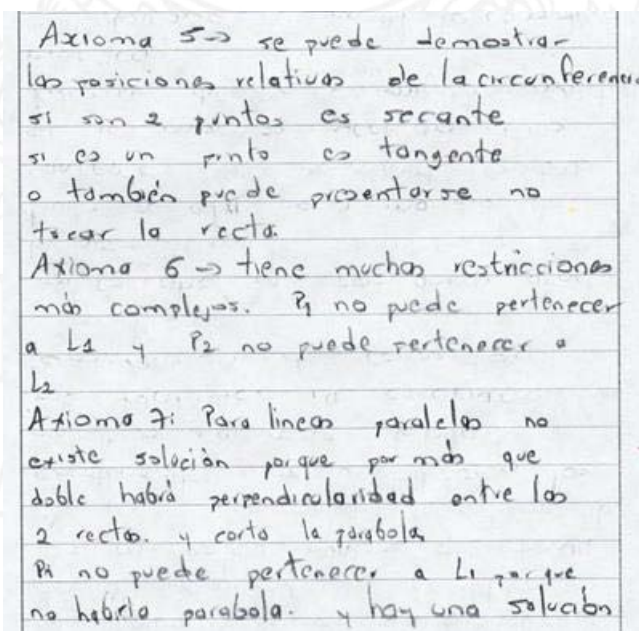 Axioma 5 → se puede demostrar
las posiciones relativas de la circunferencia
si son 2 puntos es secante
si es un punto es tangente
o también puede presentarse no
tocar la recta.
Axioma 6 → tiene muchas restricciones
más complejas. P1 no puede pertenecer
a L1 y P2 no puede pertenecer a
L2
Axioma 7: Para lineas paralelas no
existe solución porque por más que
doble habrá perpendicularidad entre las
2 rectas. y corto la parabola
P1 no puede pertenecer a L1 porque
no habría parabola. y hay una solución